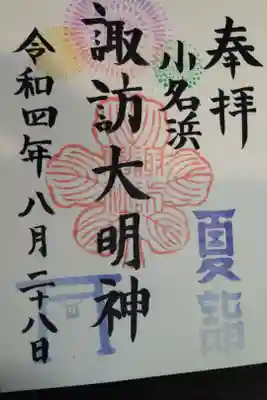 奉拝
夏詣
小名浜
諏訪大明神
令和四年八月二十八日